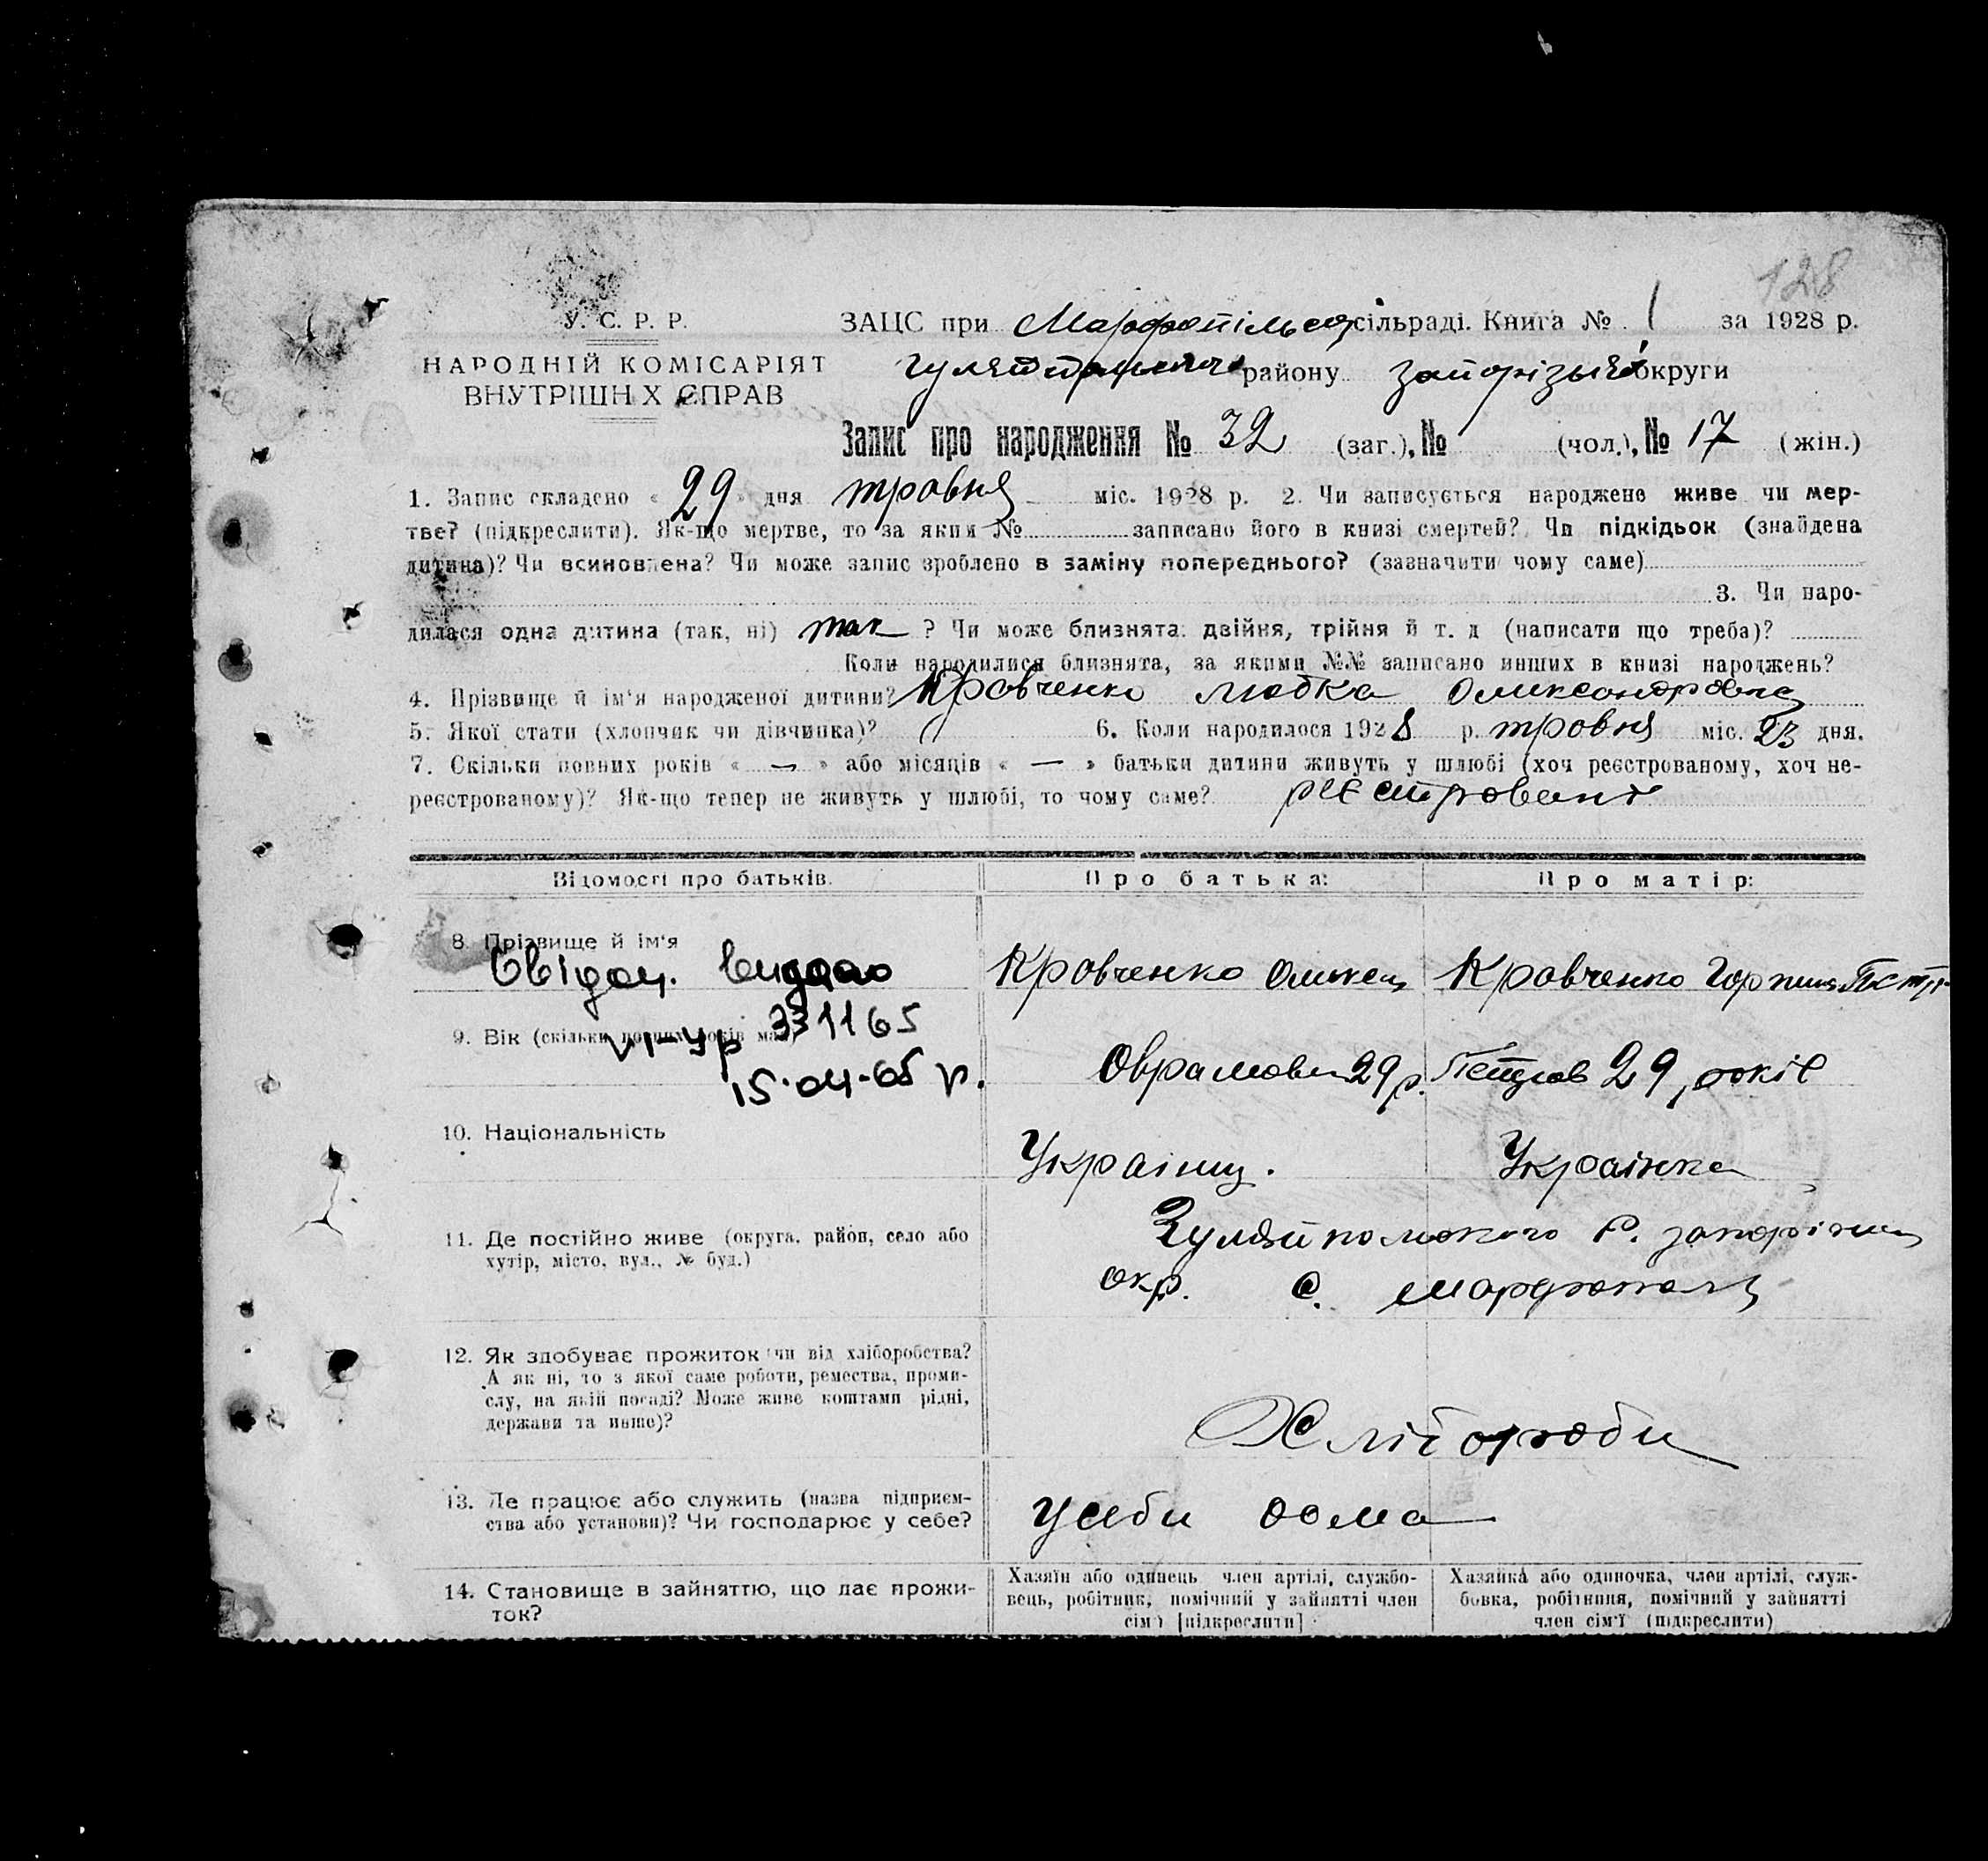 128
У. С. Р. Р.
НАРОДНІЙ КОМІСАРІЯТ
ВНУТРІШН Х СПРАВ
ЗАЦС при Марфопільськ сільраді. Книга № 1 за 1928 р.
району Запорізької округи
Запис про народження № 32 (заг.), № (чол.), № 17 (жін.)
1. Запис складено « 29 » дня травня міс. 1928 р. 2. Чи записується народжене живе чи мер-
тве? (підкреслити). Як-що мертве, то за яким № записано його в книзі смертей? Чи підкідьок (знайдена
дитина)? Чи всиновлена? Чи може запис зроблено в заміну попереднього? (зазначити чому саме)
3. Чи наро-
дилася одна дитина (так, ні) так ? Чи може близнята: двійня, трійня й т. д (написати що треба)?
Коли народилися близнята, за якими №№ записано инших в книзі народжень?
4. Прізвище й ім'я народженої дитини? Кровченко Любка
5. Якої стати (хлопчик чи дівчинка)? 6. Коли народилося 1928 р. тровня міс. 23 дня.
7. Скільки повних років « — » або місяців « — » батьки дитини живуть у шлюбі (хоч реєстрованому, хоч не-
реєстрованому)? Як-що тепер не живуть у шлюбі, то чому саме? реєстровані
Відомості про батьків. Про батька: Про матір:
8. Прізвище й ім'я
Свідоц. видано
Кровченко Олисец Кровченко Горпина
9. Вік (скільки повних років має)
VI-УР 331165
15.04.65 р.
Оврамович 29 р. 29 років
10. Національність
Украінец. Украінка
11. Де постійно живе (округа, район, село або
хутір, місто, вул., № буд.)
Р.
окр. с. Марфополь
12. Як здобуває прожиток чи від хліборобства?
А як ні, то з якої саме роботи, ремества, проми-
слу, на якій посаді? Може живе коштами рідні,
держави та инше)?
Хлібороби
13. Де працює або служить (назва підприєм-
ства або установи)? Чи господарює у себе?
у себи дома
14. Становище в зайняттю, що дає прожи-
ток?
Хазяїн або одинець член артілі, службо-
вець, робітник, помічний у зайнятті член
сім'ї [підкреслити]
Хазяйка або одиночка, член артілі, служ-
бовка, робітниця, помічний у зайнятті
член сім'ї (підкреслити)